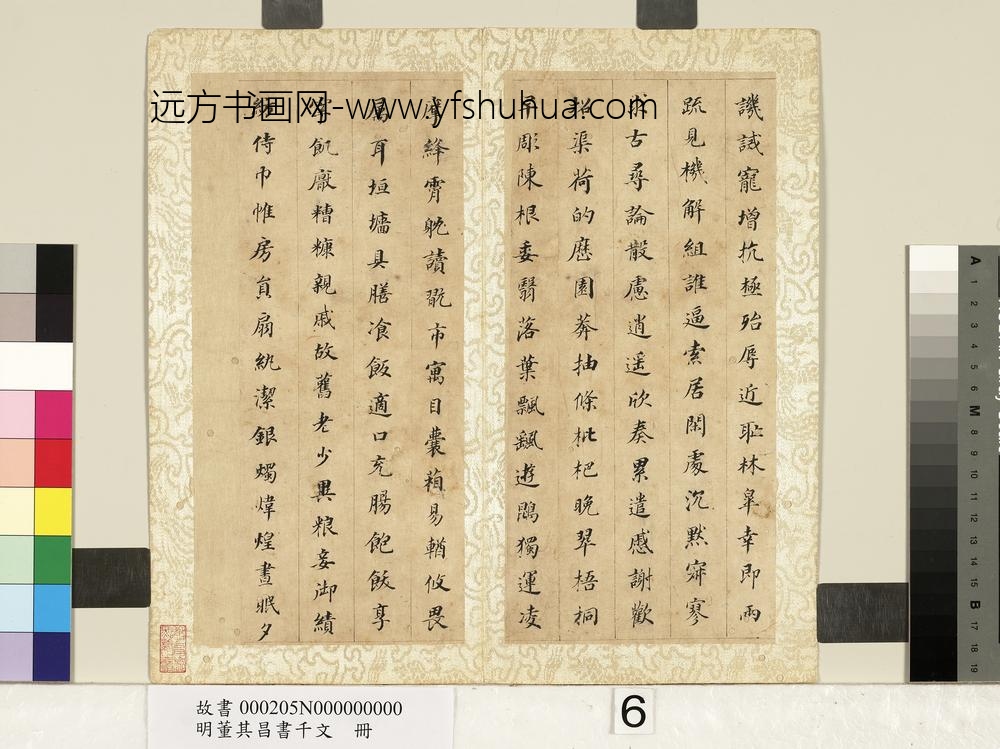 远方书画网-www.yfshuhua.com
譏誡寵增抗極殆辱近耻林皐幸即兩
疏見機解組誰逼索居閑處沉默寂寥
求古尋論散慮逍遥欣奏累遣慼謝歡
招渠荷的歷園莽抽條枇杷晚翠梧桐
早彫陳根委翳落葉飄颻遊鵾獨運凌
摩絳霄躭讀翫市寓目囊箱易輶攸畏
屬耳垣墻具膳飡飯適口充腸飽飫享
宰飢厭糟糠親戚故舊老少異粮妾御績
紡侍巾帷房員扇紈潔銀燭煒煌晝眠夕
故書 000205N000000000
明董其昌書千文 冊
6
A 1 2 3 4 5 6 M 8 9 10 11 12 13 14 15 B 17 18 19